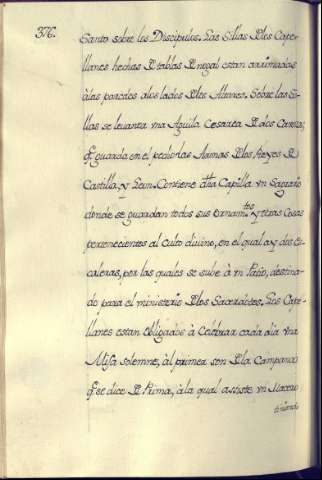 376.
Santo sobre los Discipulos. Las Sillas Dlos Cape-
llanes hechas D tablas D nogal estan arrimadas
à las paredes alos lados Dlos Altares. Sobre las Si-
llas se levanta vna Aguila Cesarea D dos Cavezas,
q guarda en el pecho las Armas Dlos Reyes D
Castilla, y Leon. Contiene dha Capilla vn Sagrario
donde se guardan todos sus Ornam.tos y otras Cosas
pertenecientes al Culto divino, en el qual ay dos Es-
caleras, por las quales se sube à vn Patio, destina-
do para el ministerio Dlos Sacerdotes. Los Cape-
llanes estan obligados à Celebrar cada dia vna
Missa solemne, àl primer son D la Campana
q se dice D Prima, à la qual assiste vn Macero